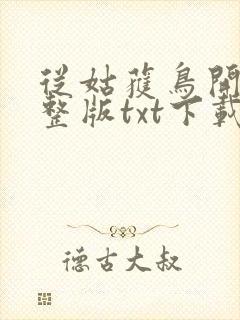 從姑獲鳥開
整版txt下載
德古大叔